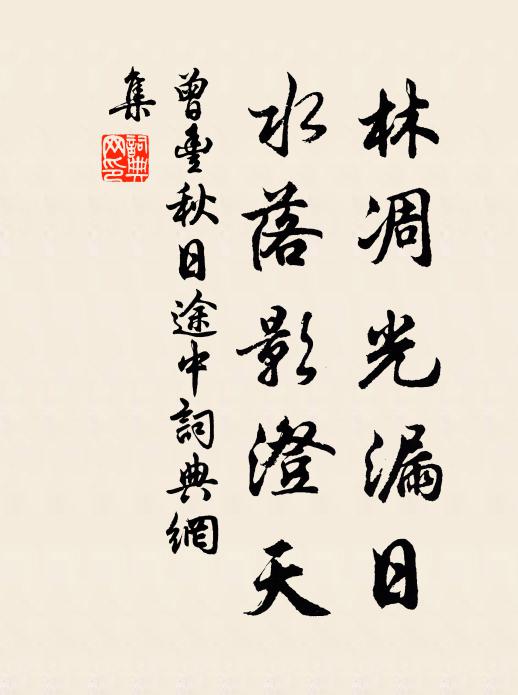 林凋光漏日
水落影澄天
曾豐秋日途中詞典網
集
詞典
网印